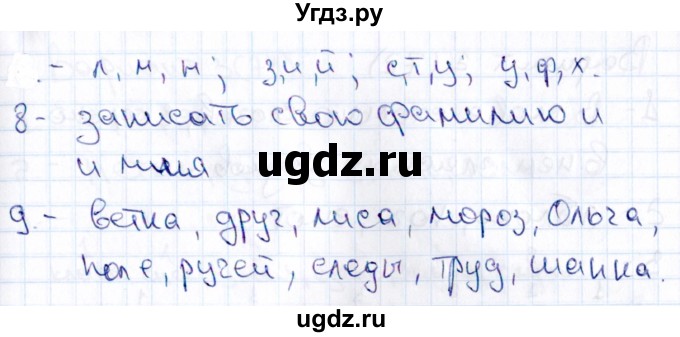 Угдз.ру
.- л, м, н; з,и,й; с,т,у; у,ф,х.
8- записать свою фамилию и
и имя
9.- ветка, друг, лиса, мороз, Ольга,
поле, ручей, следы, труд, шапка.
ugdz.ru
ugdz.ru